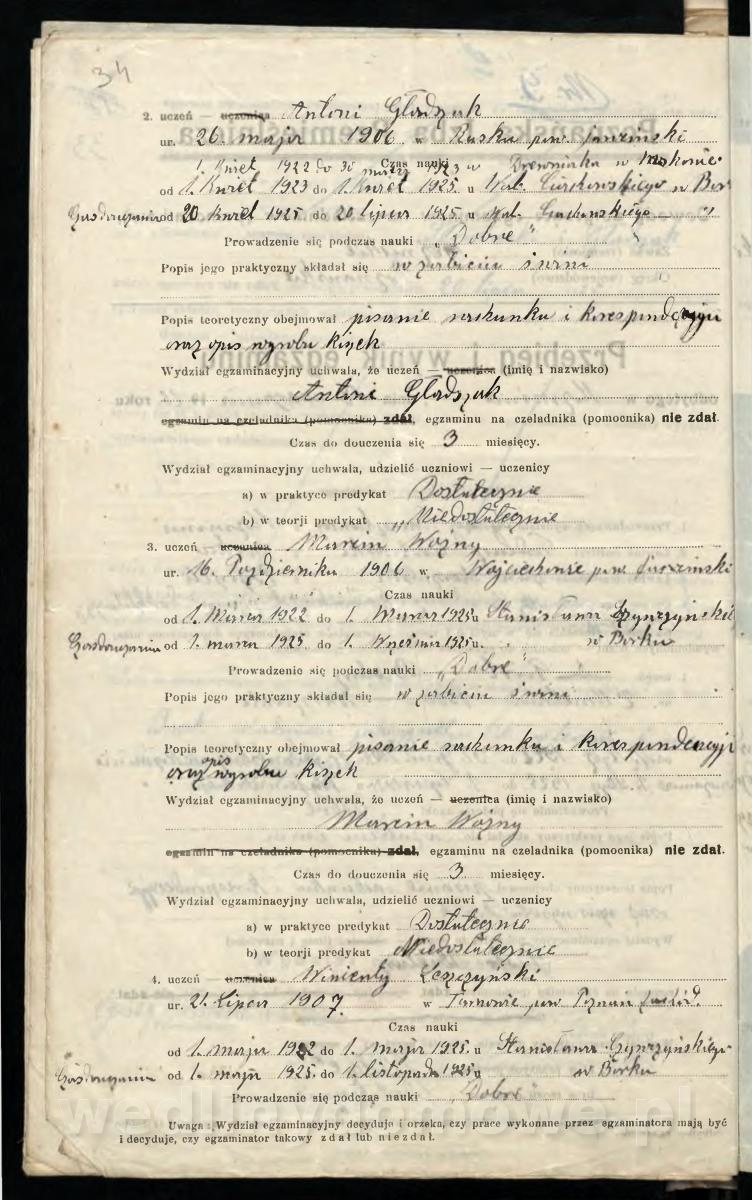 34
2. uczeń — uczenica Antoni Gładzak
ur. 26. maja 1906 w Rusku pow.
1. Kwiet 1922 do 30 marzec 1923 w w Mokonie
Czas nauki
od 1. Kwiet 1923 do 1. Kwiet 1925 u Wal. Ciachowskiego w Bor
od 20 Kwiet 1925. do 20 lipca 1925. u Wal.
Prowadzenie się podczas nauki „Dobre"
Popis jego praktyczny składał się w zabiciu świni
Popis teoretyczny obejmował pisanie rachunku i Korespondencyji
oraz opis wyrobu Kiszek
Wydział egzaminacyjny uchwala, że uczeń — uczenica (imię i nazwisko)
Antoni Gładzak
egzamin na czeladnika (pomocnika) zdał, egzaminu na czeladnika (pomocnika) nie zdał.
Czas do douczenia się 3 miesięcy.
Wydział egzaminacyjny uchwala, udzielić uczniowi — uczenicy
a) w praktyce predykat Dostatecznie
b) w teorji predykat „Niedostatecznie
3. uczeń — uczenica Marcin Woźny
ur. 16. Października 1906 w
Czas nauki
od 1. Marca 1922 do 1. Marca 1925 u Stanisława
od 1. marca 1925 do 1. Września 1925 u. w Borku
Prowadzenie się podczas nauki „Dobre"
Popis jego praktyczny składał się w zabiciu świni
Popis teoretyczny obejmował pisanie rachunku i Korespondencyji
oraz opis wyrobu Kiszek
Wydział egzaminacyjny uchwala, że uczeń — uczenica (imię i nazwisko)
Marcin Woźny
egzamin na czeladnika (pomocnika) zdał, egzaminu na czeladnika (pomocnika) nie zdał.
Czas do douczenia się 3 miesięcy.
Wydział egzaminacyjny uchwala, udzielić uczniowi — uczenicy
a) w praktyce predykat Dostatecznie
b) w teorji predykat Niedostatecznie
4. uczeń — uczenica Wincenty Leszczyński
ur. 21. Lipca 1907. w pow Poznań
Czas nauki
od 1. maja 1922 do 1. maja 1925. u Stanisława
od 1. maja 1925. do 1. listopada 1925 u w Borku
Prowadzenie się podczas nauki „Dobre"
Uwaga: Wydział egzaminacyjny decyduje i orzeka, czy prace wykonane przez egzaminatora mają być
i decyduje, czy egzaminator takowy zdał lub nie zdał.